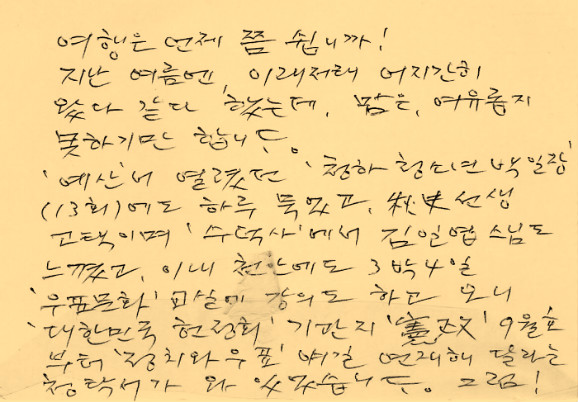 여행은 언제쯤 쉽니까!
지난 여름엔, 이래저래 어지간히
왔다 갔다 했는데, 맘은, 여유롭지
못하기만 합니다.
'예산'서 열렸던 '청하 청소년 백일장'
(13회)에도 하루 묵었고, 秋史선생
고택이며 '수덕사'에서 김일엽스님도
느꼈고, 이내 천안에도 3박4일
'우표문화' 교실에 강의도 하고 오니
'대한민국 헌정회' 기관지 '憲政' 9월호
부터 '정치와 우표' 얘길 연재해 달라는
청탁서가 와 있었습니다. 그럼!